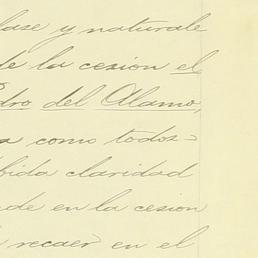 lase y naturale
de la cesion el
dro del Alamo,
a como todos
bida claridad
de en la cesion
recaer en el